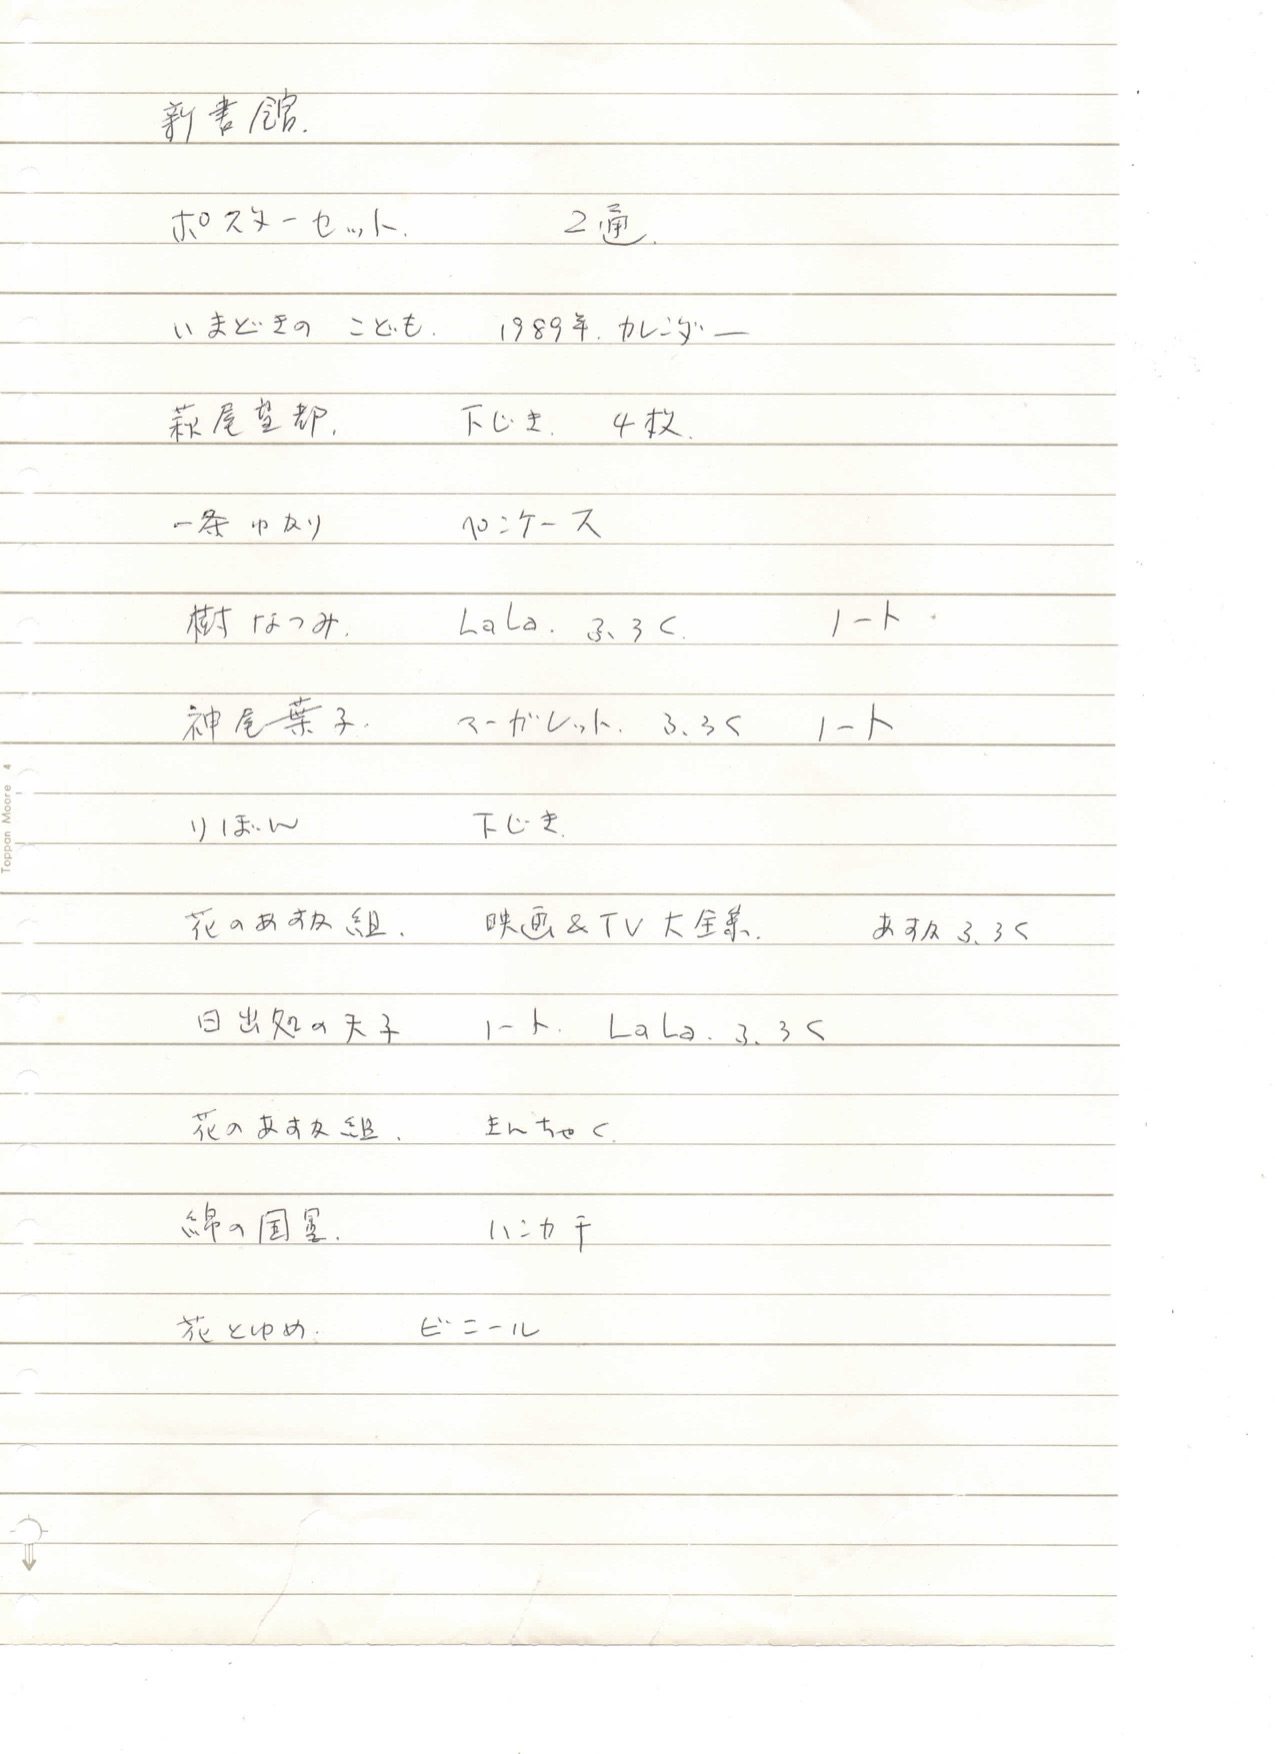 新書館.
ポスターセット. 2通.
いまどきの こども. 1989年. カレンダー
萩尾望都. 下じき. 4枚.
一条ゆかり ペンケース
樹なつみ. LaLa. ふろく. ノート
神尾葉子. マーガレット. ふろく ノート
りぼん 下じき.
花のあすか組. 映画&TV大全集. あすか ふろく
日出処の天子 ノート. LaLa. ふろく
花のあすか組. きんちゃく.
綿の国星. ハンカチ
花とゆめ. ビニール
Toppan Moore 4